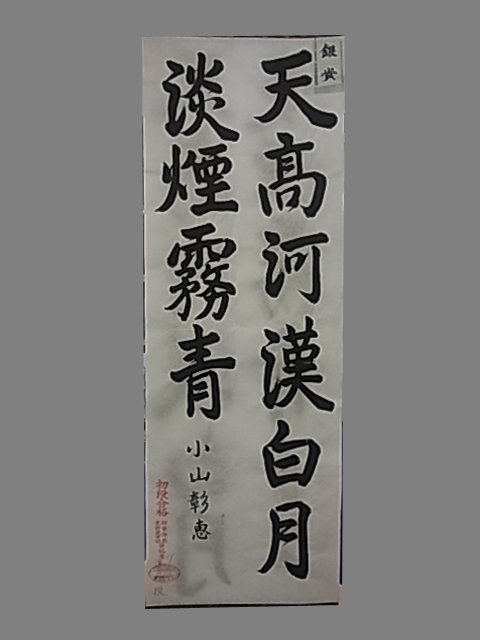 天高河漢白月
淡煙霧青
小山彰恵
初段合格